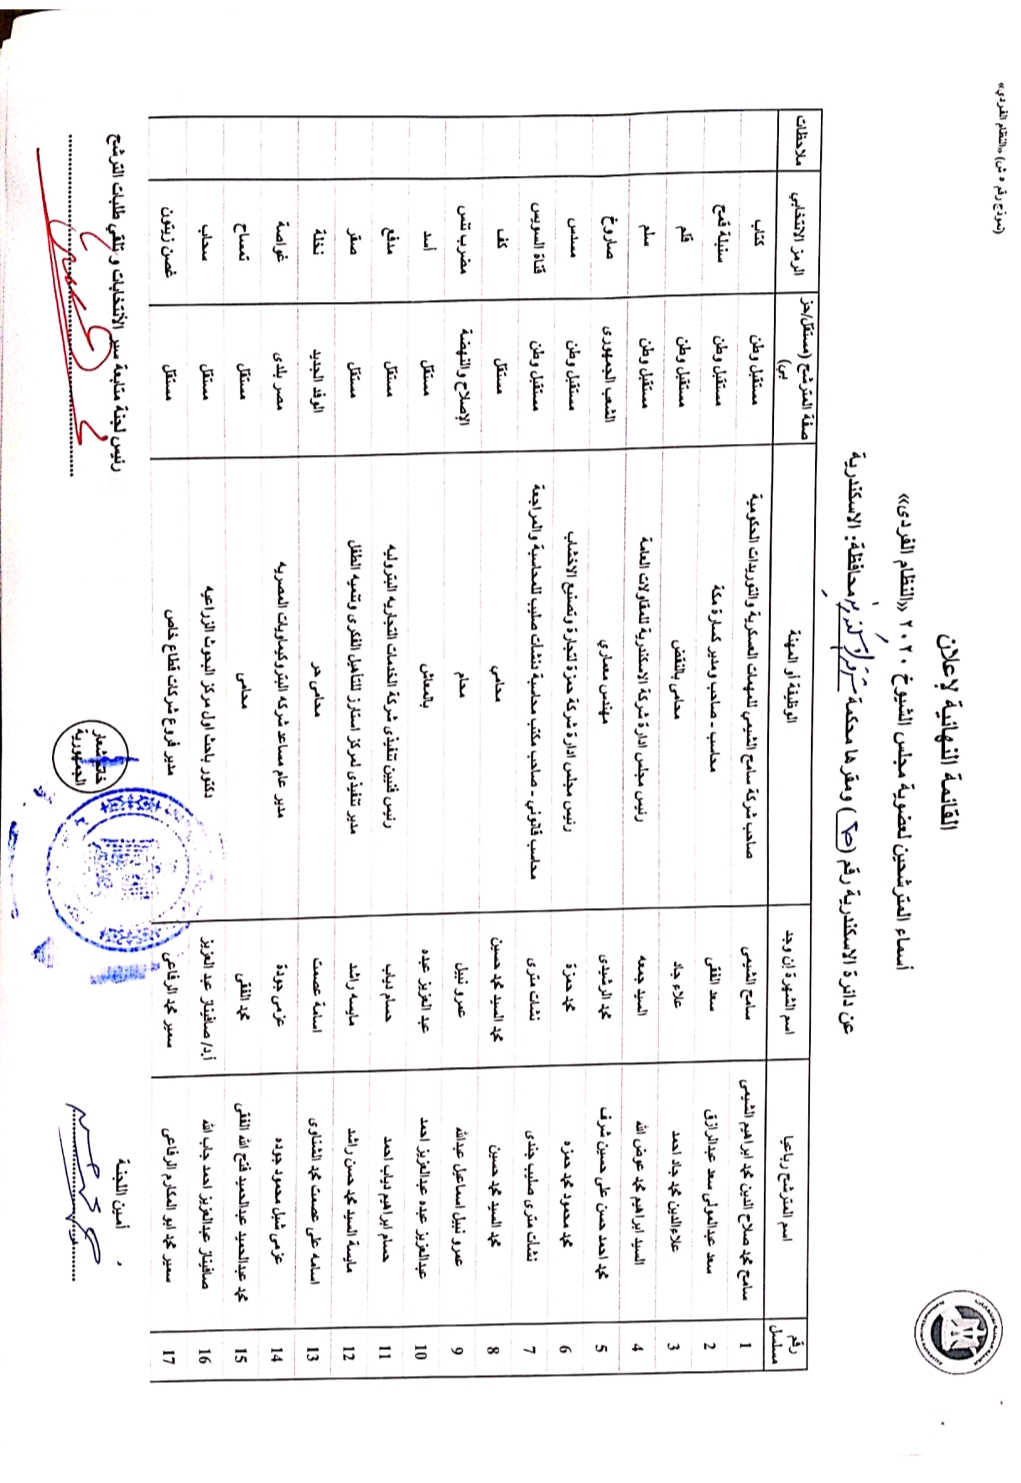 (نموذج رقم ٥ ش) «النظام الفردي»
National Election Authority
القائمة النهائية لإعلان
أسماء المترشحين لعضوية مجلس الشيوخ ٢٠٢٠ «النظام الفردى»
عن دائرة الاسكندرية رقم ( ) ومقرها محكمة شرق الاسكندرية محافظة: الاسكندرية
رقم مسلسل اسم المترشح رباعيا اسم الشهرة إن وجد الوظيفة أو المهنة صفة المترشح (مستقل/حزبي) الرمز الانتخابي ملاحظات
1 سامح محمد صلاح الدين محمد ابراهيم الشيمى سامح الشيمى صاحب شركة سامح الشيمي للمهمات العسكرية والتوريدات الحكومية مستقبل وطن كتاب
2 سعد عبدالمولى سعد عبدالرازق سعد الفقى محاسب - صاحب ومدير كسارة مكة مستقبل وطن سنبلة قمح
3 علاءالدين محمد جاد احمد علاء جاد محامى بالنقض مستقبل وطن قلم
4 السيد ابراهيم محمد عوض الله السيد جمعه رئيس مجلس ادارة شركة الاسكندرية للمقاولات العامة مستقبل وطن سلم
5 محمد احمد حسن على حسين شرف محمد الرشيدى مهندس معماري الشعب الجمهورى صاروخ
6 محمد محمود محمد حمزه محمد حمزة رئيس مجلس ادارة شركة حمزة لتجارة وتصنيع الاخشاب مستقبل وطن مسدس
7 نشأت مترى صليب جندى نشات مترى محاسب قانوني - صاحب مكتب محاسبة دنشأت صليب للمحاسبة والمراجعة مستقبل وطن قناة السويس
8 محمد السيد محمد حسين محمد السيد محمد حسين محامي مستقل كف
9 عمرو نبيل اسماعيل عبدالله عمرو نبيل محام الإصلاح والنهضة مضرب تنس
10 عبدالعزيز عبده عبدالعزيز احمد عبد العزيز عبده بالمعاش مستقل أسد
11 حسام ابراهيم دياب احمد حسام دياب رئيس فنيين تنفيذى شركة الخدمات التجاريه البتروليه مستقل مدفع
12 مايسة السيد محمد حسن راشد مايسه راشد مدير تنفيذى لمركز استارز للتأهيل الفكرى وتنميه الطفل مستقل صقر
13 اسامه على عصمت محمد الشناوى اسامة عصمت محامى حر الوفد الجديد نخلة
14 عزمى شبل محمود جوده عزمى جودة مدير عام مساعد شركه البتروكيماويات المصريه مصر بلدى غواصة
15 محمد عبدالحميد عبدالحميد فتح الله الفقى محمد الفقى محامى مستقل تمساح
16 صافيناز عبدالعزيز احمد جاب الله أ.د/ صافيناز عبد العزيز دكتور باحث اول مركز البحوث الزراعيه مستقل سحاب
17 سمير محمد ابو المكارم الرفاعى سمير محمد الرفاعى مدير فروع شركات قطاع خاص مستقل غصن زيتون
أمين اللجنة
خاتم شعار الجمهورية
رئيس لجنة متابعة سير الأنتخابات و تلقي طلبات الترشح